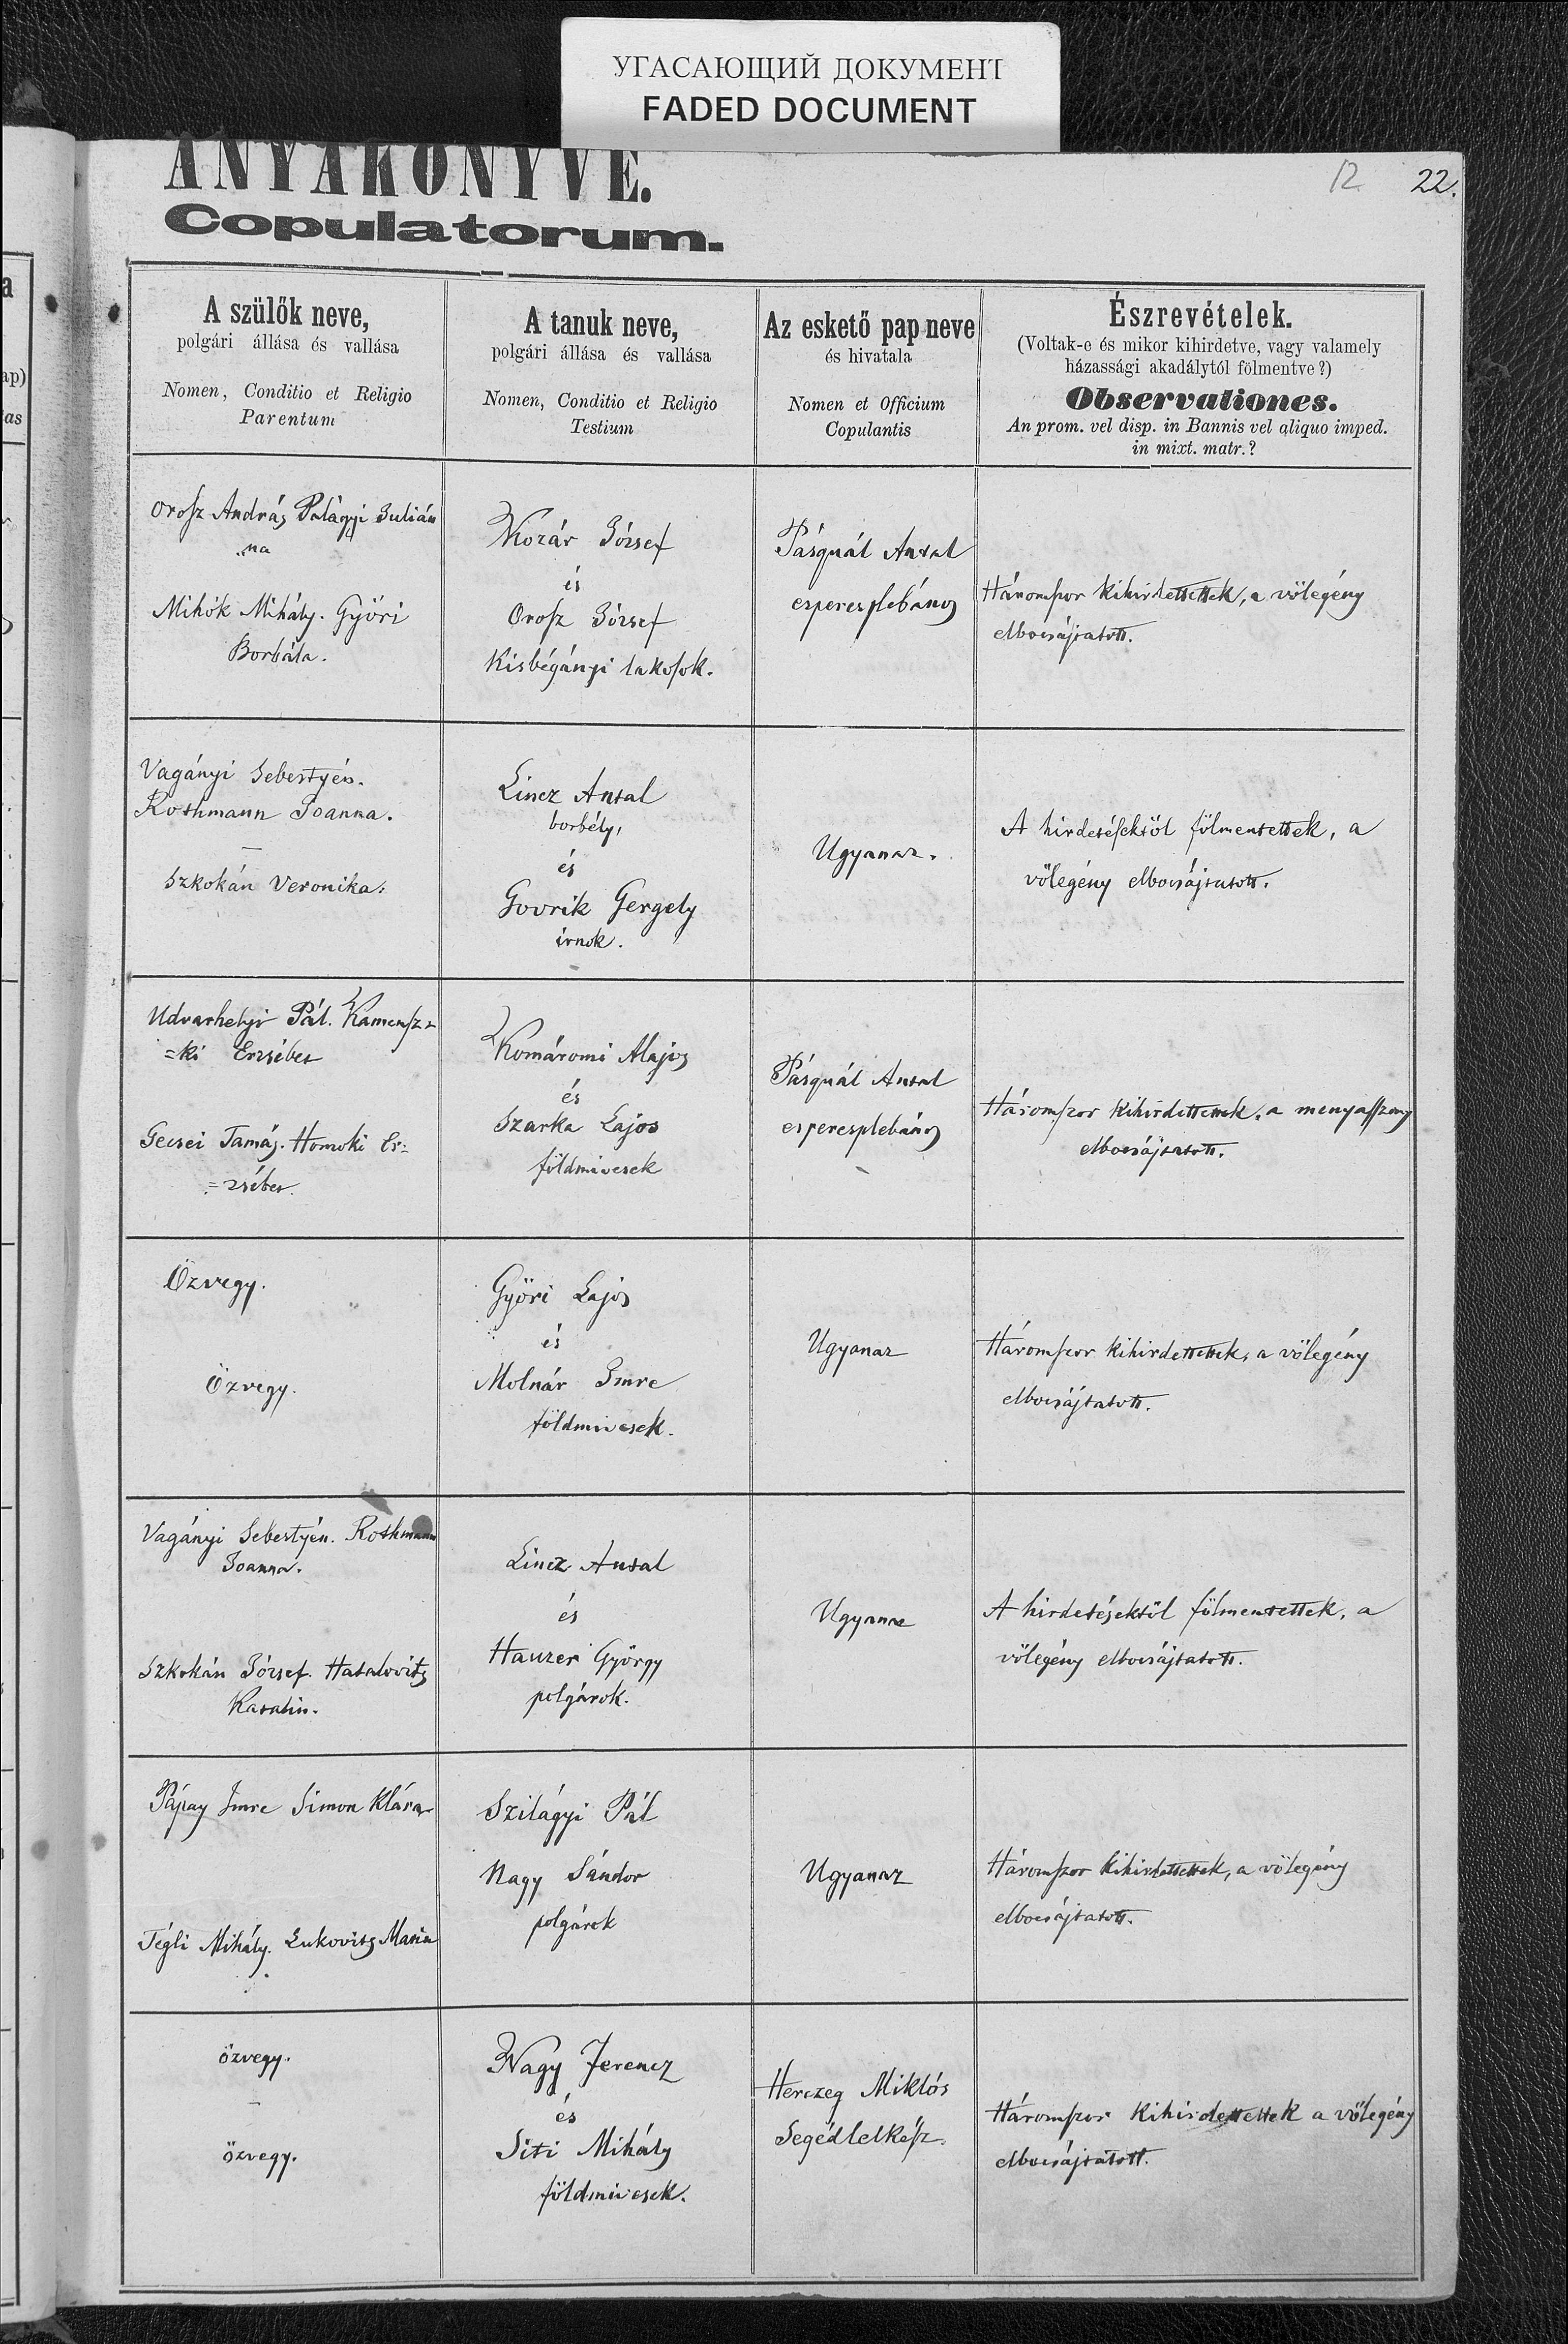 УГАСАЮЩИЙ ДОКУМЕНТ
FADED DOCUMENT
ANYAKÖNYVE.
Copulatorum.
12 22.
A szülők neve,
polgári állása és vallása
Nomen, Conditio et Religio
Parentum
A tanuk neve,
polgári állása és vallása
Nomen, Conditio et Religio
Testium
Az eskető pap neve
és hivatala
Nomen et Officium
Copulantis
Észrevételek.
(Voltak-e és mikor kihirdetve, vagy valamely
házassági akadálytól fölmentve?)
Observationes.
An prom. vel disp. in Bannis vel aliquo imped.
in mixt. matr.?
Orosz András Palágyi Julián
na
Mihók Mihály. Győri
Borbála.
Kozár József
és
Orosz József
Kisbégányi lakosok.
Pásquál Antal
esperesplebános
Háromszor kihirdettettek, a völegény
elbocsájtatott.
Vagányi Sebestyén.
Rothmann Joanna.
Szkokán Veronika.
Lincz Antal
borbély,
és
Govrik Gergely
írnok.
Ugyanaz.
A hirdetésektöl fölmentettek, a
völegény elbocsájtatott.
Udvarhelyi Pál. Kamensz=
=ki Erzsébet
Gecsei Tamás. Homoki Er=
=zsébet.
Komáromi Alajos
és
Szarka Lajos
földmivesek
Pásquál Antal
esperesplebános
Háromszor kihirdettettek, a menyasszony
elbocsájtatott.
Özvegy.
Özvegy.
Győri Lajos
és
Molnár Imre
földmivesek.
Ugyanaz
Háromszor kihirdettettek, a völegény
elbocsájtatott.
Vagányi Sebestyén. Rothmann
Joanna.
Szkokán József. Hatalovits
Katalin.
Lincz Antal
és
Hauzer György
polgárok.
Ugyanaz
A hirdetésektöl fölmentettek, a
völegény elbocsájtatott.
Pápay Imre Simon Klára
Tégli Mihály. Lukovits Mária
Szilágyi Pál
Nagy Sándor
polgárok
Ugyanaz
Háromszor kihirdettettek, a völegény
elbocsájtatott.
özvegy.
özvegy.
Nagy Ferencz
és
Siti Mihály
földmivesek.
Herczeg Miklós
Segédlelkész.
Háromszor kihirdettettek a völegény
elbocsájtatott.